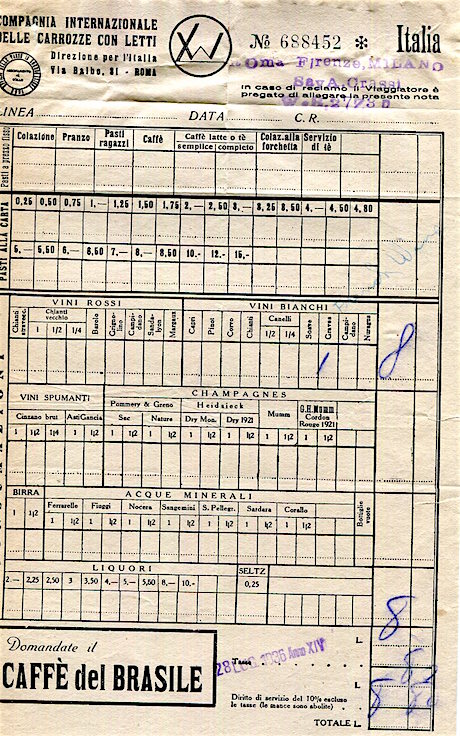 COMPAGNIA INTERNAZIONALE
DELLE CARROZZE CON LETTI
Direzione per l'Italia
Via Balbo, 31 - ROMA
№ 688452 * Italia
Roma Firenze, MILANO
Sav.A. Grassi
In caso di reclamo il Viaggiatore è
pregato di allegare la presente nota
LINEA DATA C. R.
Pasti a prezzo fisso
Colazione Pranzo Pasti ragazzi Caffè Caffè latte o tè semplice completo Colaz. alla forchetta Servizio di tè
PASTI ALLA CARTA
0,25 0,50 0,75 1.— 1,25 1,50 1,75 2.— 2,50 3.— 3,25 3,50 4.— 4,50 4,80
5.— 5,50 6.— 6,50 7.— 8.— 8,50 10.- 12.- 15.-
VINI ROSSI VINI BIANCHI
Chianti stravecc. Chianti vecchio 1 1/2 1/4 Barolo Grignolino Campidano Sandalyon Margaux Capri Pinot Corvo Chianti Canelli 1/2 1/4 Soave Graves Campidano Nuragus
1 8
VINI SPUMANTI CHAMPAGNES
Pommery & Greno Heidsieck Mumm G.H. Mumm Cordon Rouge 1921
Cinzano brut Asti Gancia Sec Nature Dry Mon. Dry 1921
1 1/2 1/4 1 1/2 1 1/2 1 1/2 1 1/2 1 1/2 1 1/2 1 1/2
BIRRA ACQUE MINERALI
Ferrarelle Fiuggi Nocera Sangemini S. Pellegr. Sardara Corallo Bottiglie vuote
1 1/2 1 1/2 1 1/2 1 1/2 1 1/2 1 1/2 1 1/2 1 1/2
LIQUORI SELTZ
2.— 2,25 2,50 3 3,50 4.— 5.— 5,50 8.— 10.- 0,25
8
Domandate il
CAFFÈ del BRASILE
L.
1936 Anno XIV
Tasse
L.
Diritto di servizio del 10% escluso
le tasse (le mance sono abolite)
TOTALE L.